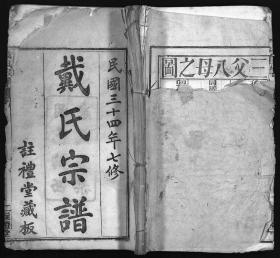 民國三十四年七修
戴氏宗譜
註禮堂藏板
三父八母之圖